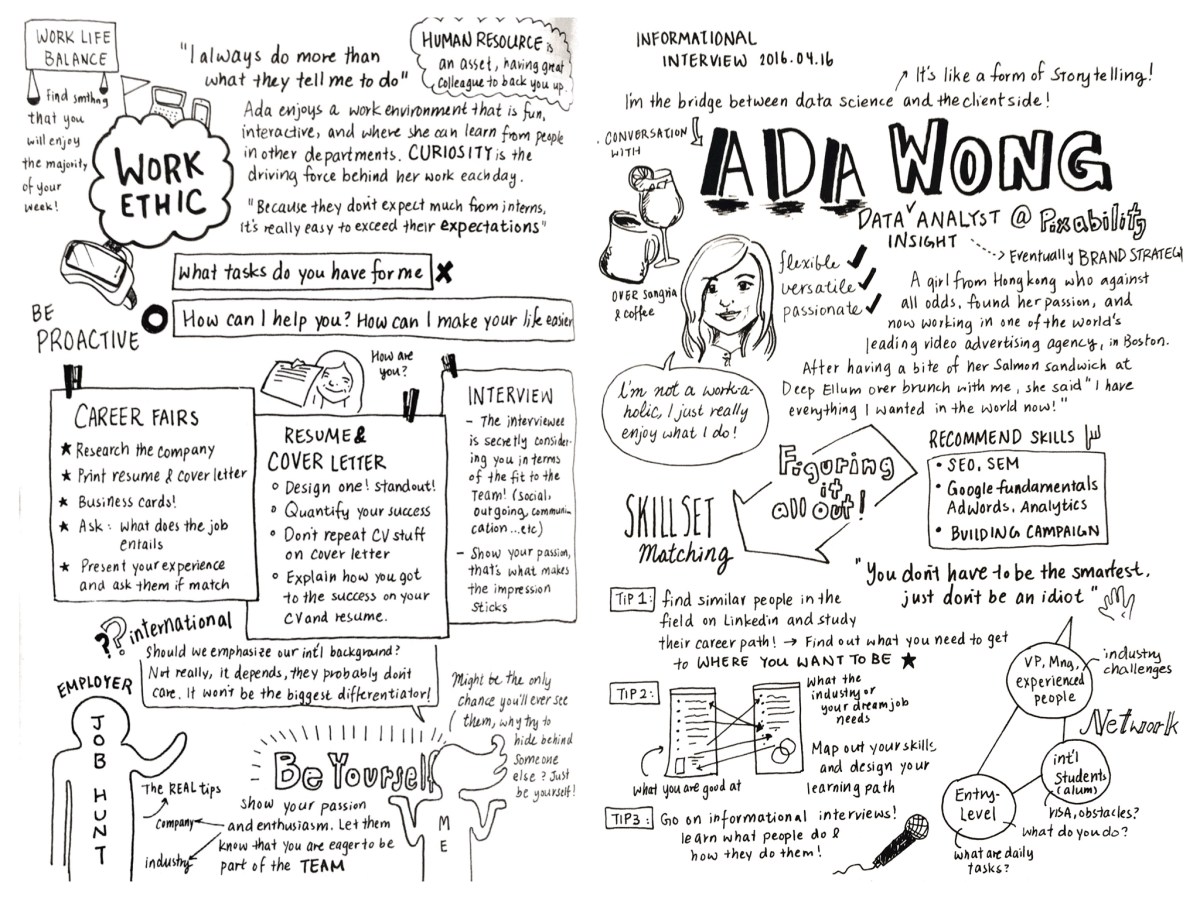 WORK LIFE
BALANCE
find smthng
that you
will enjoy
the majority
of your
week!
"I always do more than
what they tell me to do"
HUMAN RESOURCE is
an asset, having great
colleague to back you up.
WORK
ETHIC
Ada enjoys a work environment that is fun,
interactive, and where she can learn from people
in other departments. CURIOSITY is the
driving force behind her work each day.
"Because they don't expect much from interns,
it's really easy to exceed their expectations"
BE
PROACTIVE
What tasks do you have for me
How can I help you? How can I make your life easier
How are
you?
CAREER FAIRS
★ Research the company
★ Print resume & cover letter
★ Business cards!
★ Ask: what does the job
entails
★ Present your experience
and ask them if match
RESUME &
COVER LETTER
° Design one! standout!
° Quantify your success
° Don't repeat CV stuff
on cover letter
° Explain how you got
to the success on your
CV and resume.
INTERVIEW
- The interviewee
is secretly consider-
ing you in terms
of the fit to the
Team! (social,
outgoing, communi-
cation...etc)
- Show your passion,
that's what makes
the impression
sticks
?? international
Should we emphasize our int'l background?
Not really, it depends, they probably don't
care. It won't be the biggest differentiator!
EMPLOYER
JOB HUNT
The REAL tips
company
industry
Be Yourself
show your passion
and enthusiasm. Let them
know that you are eager to be
part of the TEAM
ME
Might be the only
chance you'll ever see
them, why try to
hide behind
someone
else? Just
be yourself!
INFORMATIONAL
INTERVIEW 2016.04.16
It's like a form of storytelling!
I'm the bridge between data science and the client side!
CONVERSATION
WITH
ADA WONG
DATA ANALYST @ Pixability
INSIGHT
Eventually BRAND STRATEGY
OVER Sangria
& coffee
flexible ✓
versatile ✓
passionate ✓
A girl from Hongkong who against
all odds, found her passion, and
now working in one of the world's
leading video advertising agency, in Boston.
After having a bite of her Salmon sandwich at
Deep Ellum over brunch with me, she said "I have
everything I wanted in the world now!"
I'm not a work-a-
holic, I just really
enjoy what I do!
Figuring
it
all out!
SKILLSET
Matching
RECOMMEND SKILLS
• SEO, SEM
• Google fundamentals
AdWords, Analytics
• BUILDING CAMPAIGN
"You don't have to be the smartest,
just don't be an idiot"
TIP 1: find similar people in the
field on Linkedin and study
their career path! → Find out what you need to get
to WHERE YOU WANT TO BE ★
TIP 2:
What the
industry or
your dream job
needs
what you are good at
Map out your skills
and design your
learning path
TIP 3: Go on informational interviews!
learn what people do &
how they do them!
VP, Mng,
experienced
people
industry
challenges
Network
int'l
Students
(alum)
VISA, obstacles?
what do you do?
Entry-
Level
what are daily
tasks?